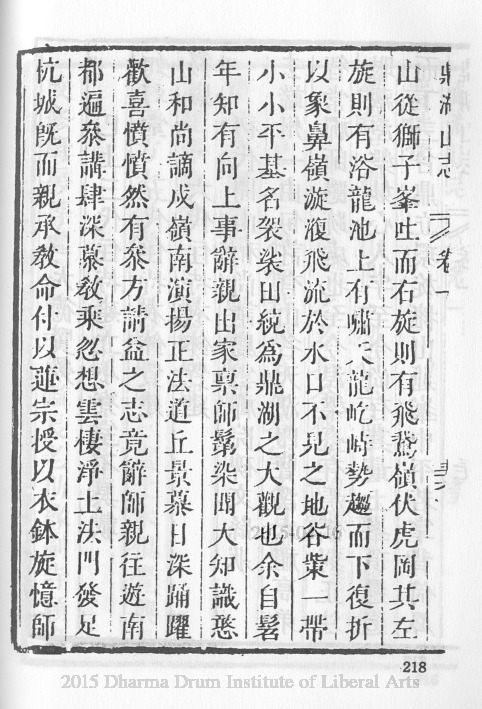 鼎湖山志 卷一
山從獅子峯吐而右旋則有飛鵞嶺伏虎岡其左
旋則有浴龍池上有嘯天龍屹峙勢趨而下復折
以象鼻嶺漩澓飛流於水口不見之地谷業一帶
小小平基名袈裟田統爲鼎湖之大觀也余自髫
年知有向上事辭親出家禀師鬀染聞大知識憨
山和尚謫戍嶺南演揚正法道丘景慕日深踊躍
歡喜憤憤然有叅方請益之志竟辭師親往遊南
都遍叅講肆深慕敎乘忽想雲棲淨土法門發足
杭城旣而親承敎命付以蓮宗授以衣鉢旋憶師
218
2015 Dharma Drum Institute of Liberal Arts